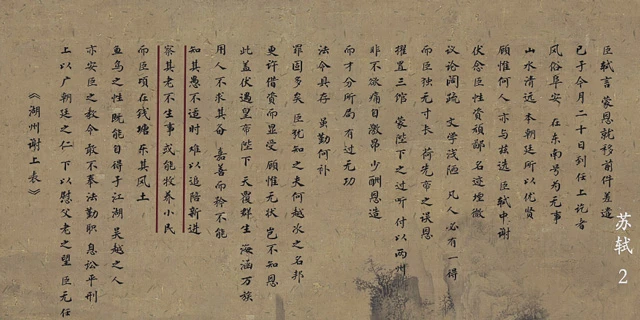 臣轼言 蒙恩就移前件差遣
已于今月二十日到任上讫者
风俗阜安 在东南号为无事
山水清远 本朝廷所以优贤
顾惟何人 亦与兹选 臣轼中谢
伏念臣性资顽鄙 名迹堙微
议论阔疏 文学浅陋 凡人必有一得
而臣独无寸长 荷先帝之误恩
擢置三馆 蒙陛下之过听 付以两州
非不欲痛自激昂 少酬恩造
而才分所局 有过无功
法令具存 虽勤何补
罪固多矣 臣犹知之 夫何越次之名邦
更许借资而显受 顾惟无状 岂不知恩
此盖伏遇皇帝陛下 天覆群生 海涵万族
用人不求其备 嘉善而矜不能
知其愚不适时 难以追陪新进
察其老不生事 或能牧养小民
而臣顷在钱塘 乐其风土
鱼鸟之性 既能自得于江湖 吴越之人
亦安臣之教令 敢不奉法勤职 息讼平刑
上以广朝廷之仁 下以慰父老之望 臣无任
《湖州谢上表》
苏轼 2